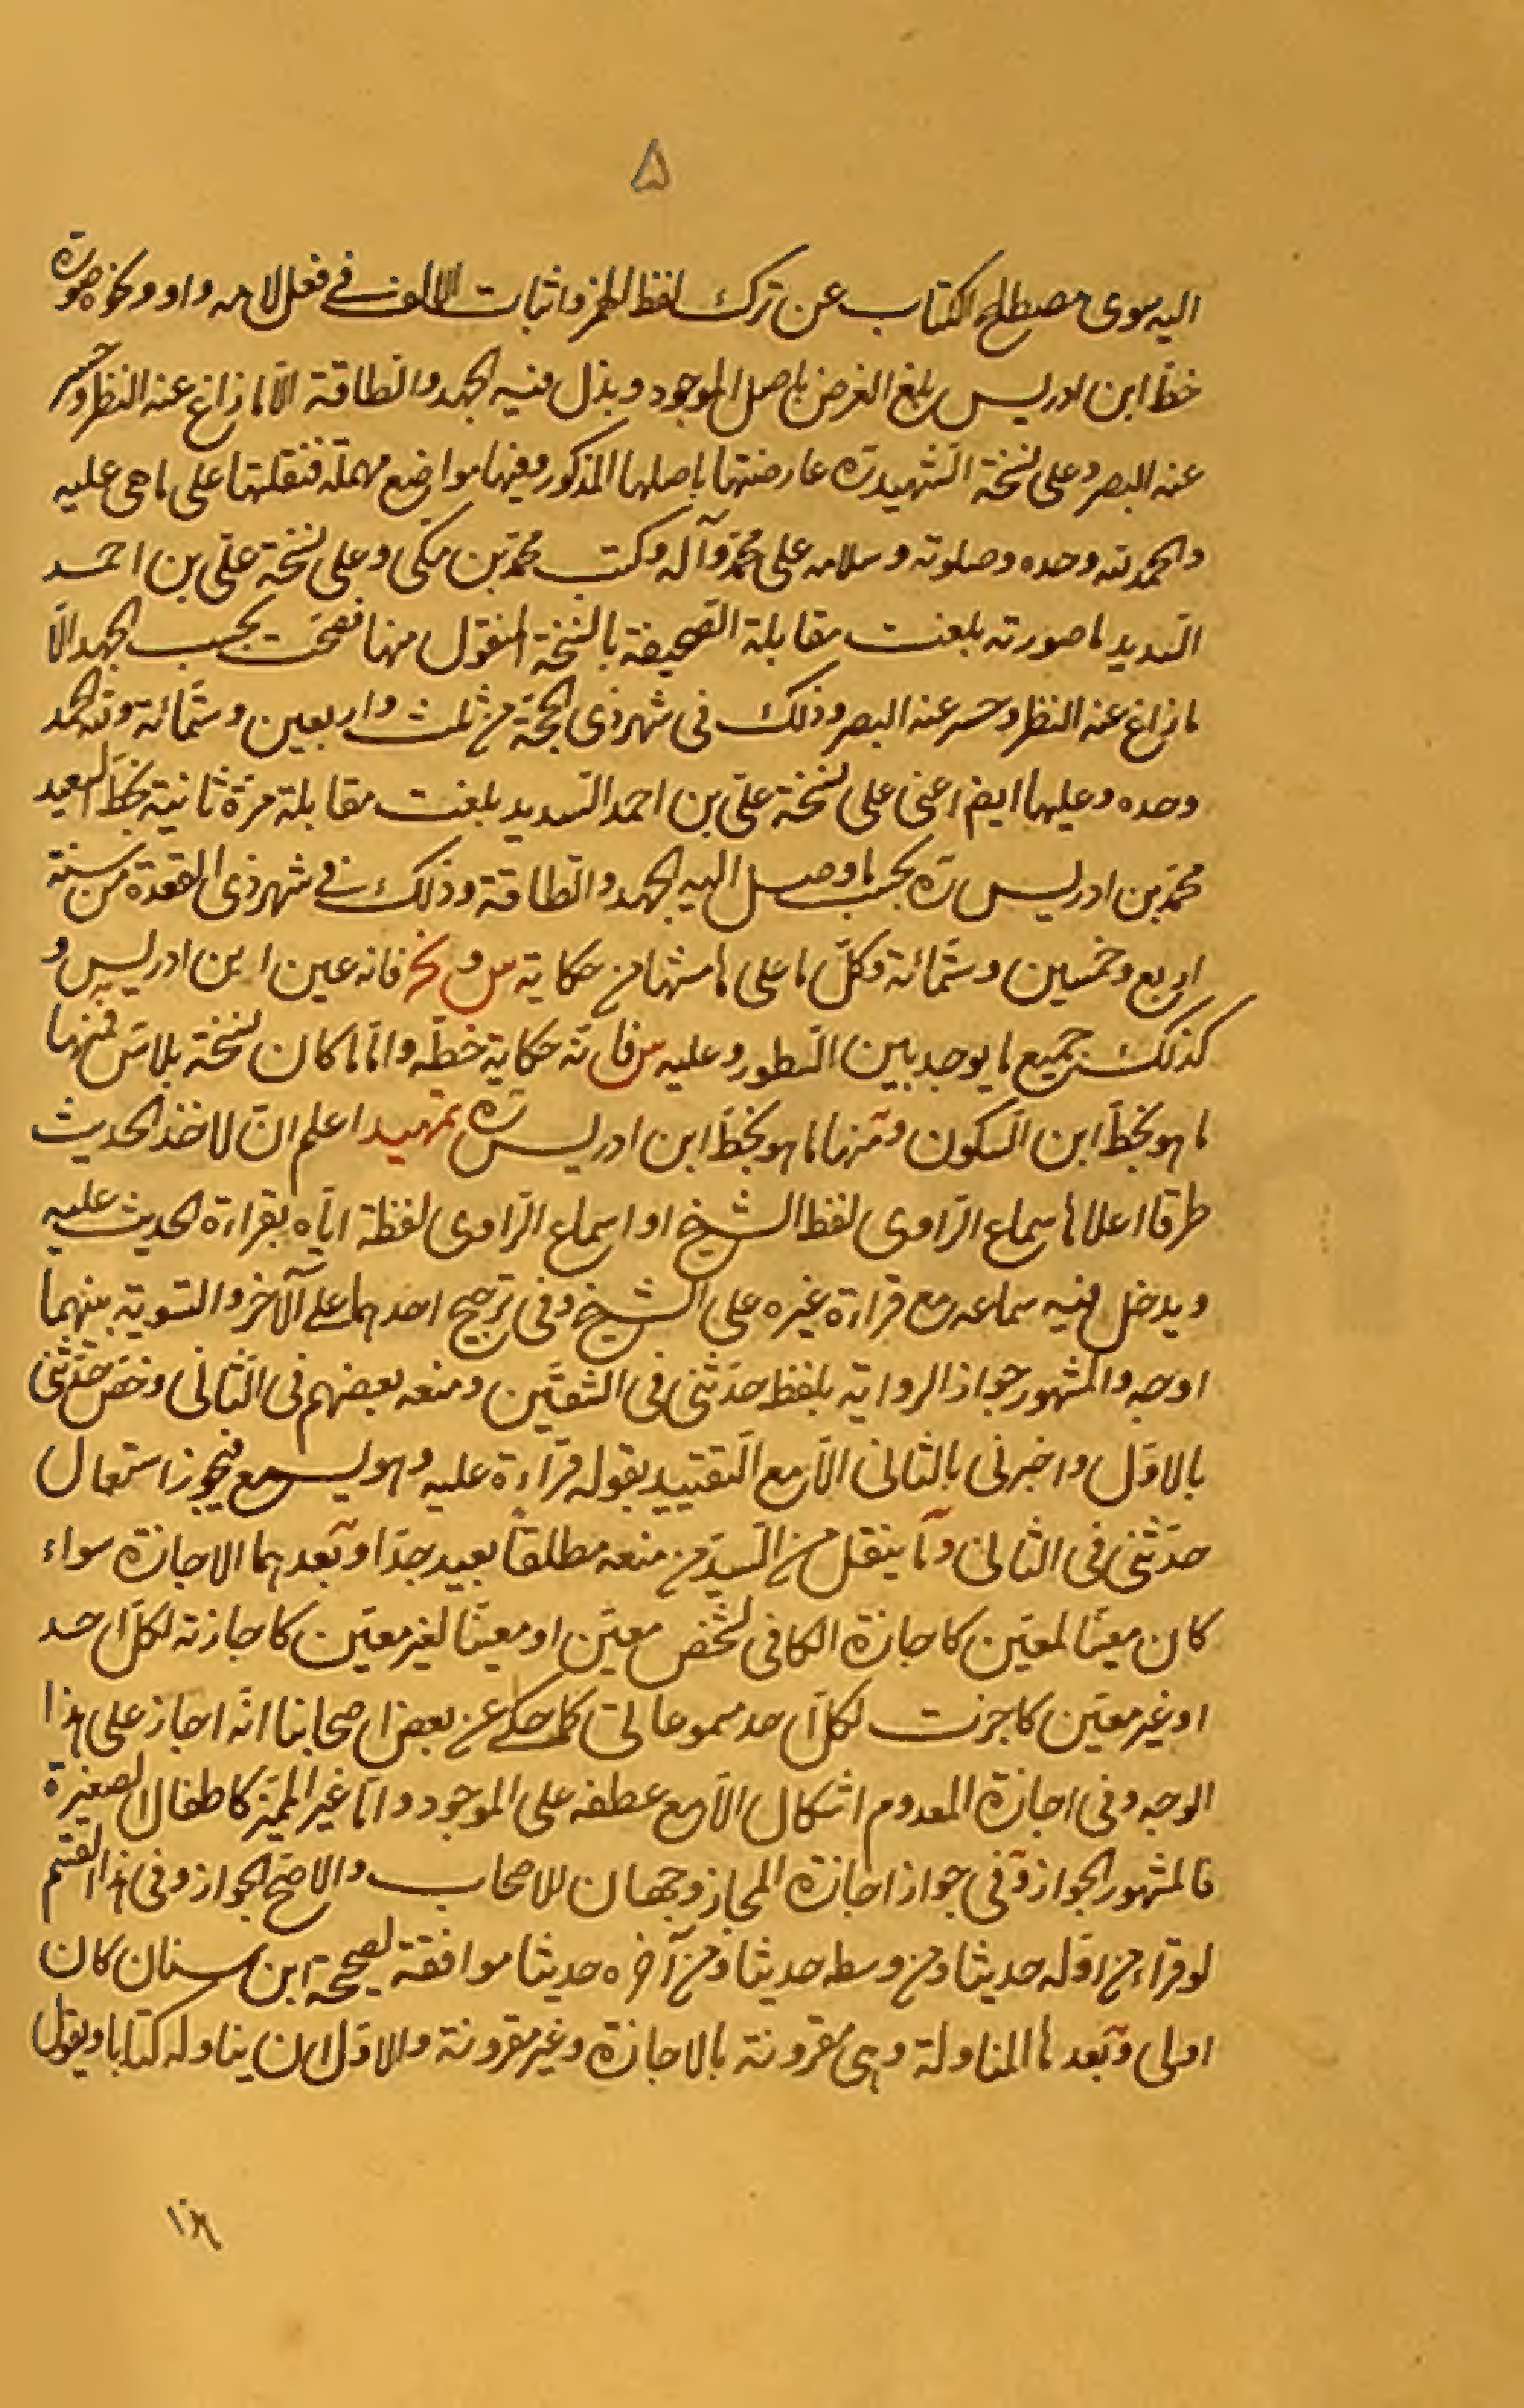 ۵
اليه سوى مصطلح الكتاب عن ترك لفظ الهمز واثبات الالف في فعل لامه واو ونحوه صورة
خط ابن ادريس بلغ العرض باصل الموجود وبذل فيه الجهد والطاقة الا ما زاغ عنه النظر وحسر
عنه البصر وعلى نسخة الشهيد ره عارضتها باصلها المذكور وفيها مواضع مهملة فنقلتها على ما هي عليه
والحمد لله وحده وصلوته وسلامه على محمد وآله وكتب محمد بن مكي وعلى نسخة علي بن احمد
السديد ما صورته بلغت مقابلة الصحيفة بالنسخة المنقول منها فصحت بحسب الجهد الا
ما زاغ عنه النظر وحسر عنه البصر وذلك في شهر ذي الحجة من ثلث واربعين وستمائة ولله الحمد
وحده وعليها ايض اعني على نسخة علي بن احمد السديد بلغت مقابلة مرة ثانية بخط السعيد
محمد بن ادريس ره بحسب ما وصل اليه الجهد والطاقة وذلك في شهر ذي القعدة من سنة
اربع وخمسين وستمائة وكل ما على هامشها من حكاية س و نخ فانه عين ابن ادريس و
كذلك جميع ما يوجد بين السطور وعليه س فانه حكاية خطه واما ما كان نسخة بلا س فمنها
ما هو بخط ابن السكون ومنها ما هو بخط ابن ادريس ره تمهيد اعلم ان لاخذ الحديث
طرقا اعلاها سماع الراوي لفظ الشيخ او اسماع الراوي لفظه اياه بقراءة الحديث عليه
ويدخل فيه سماعه مع قراءة غيره على الشيخ وفي ترجيح احدهما على الآخر والتسوية بينهما
اوجه والمشهور جواز الرواية بلفظ حدثني في الشقين ومنعه بعضهم في الثاني وخص حدثني
بالاول واخبرني بالثاني الا مع التقييد بقوله قراءة عليه وهو يسمع فيجوز استعمال
حدثني في الثاني وما ينقل من السيد من منعه مطلقاً بعيد جدا وبعدهما الاجازة سواء
كان معينا لمعين كاجازة الكافي لشخص معين او معينا لغير معين كاجازته لكل احد
او غير معين كاجزت لكل احد مسموعاتي كما حكي عن بعض اصحابنا انه اجاز على هذا
الوجه وفي اجازة المعدوم اشكال الا مع عطفه على الموجود واما غير المميز كاطفال الصغيرة
فالمشهور الجواز وفي جواز اجازة المجاز وجهان للاصحاب والاصح الجواز وفي هذا القسم
لو قراء من اوله حديثا ومن وسطه حديثا ومن آخره حديثا موافقة لصحيحة ابن سنان كان
اولى وبعدها المناولة وهي مقرونة بالاجازة وغير مقرونة والاول ان يناوله كتابا ويقول
هذا